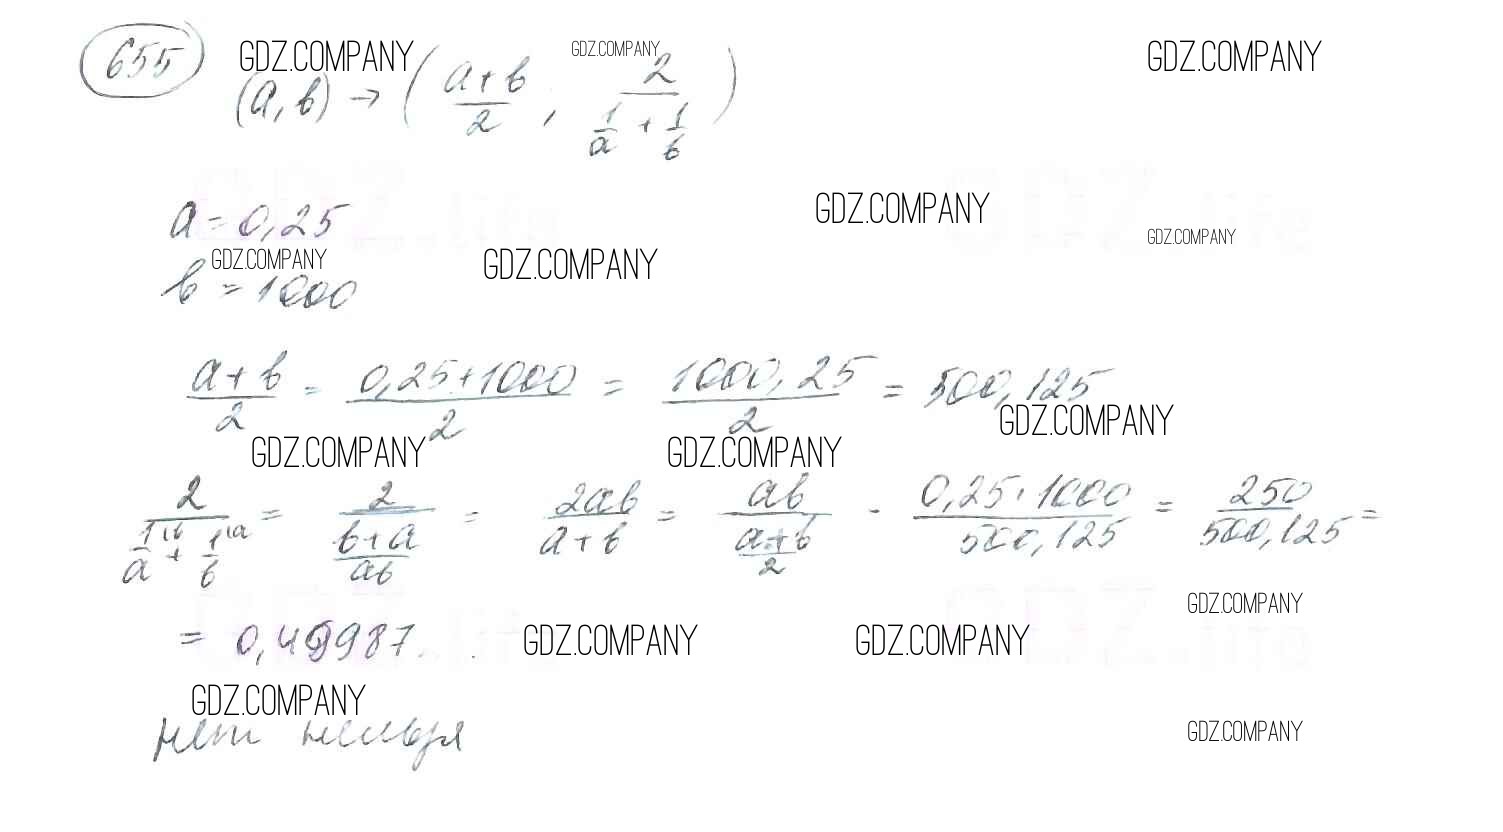 655 GDZ.COMPANY GDZ.COMPANY GDZ.COMPANY
(a, b) → ( (a+b)/2 , 2/(1/a + 1/b) )
a = 0,25 GDZ.COMPANY
GDZ.COMPANY GDZ.COMPANY GDZ.COMPANY
b = 1000
(a+b)/2 = (0,25+1000)/2 = 1000,25/2 = 500,125
GDZ.COMPANY GDZ.COMPANY GDZ.COMPANY
2/(1/a + 1/b) = 2/((b+a)/ab) = 2ab/(a+b) = ab/((a+b)/2) = (0,25·1000)/500,125 = 250/500,125 =
GDZ.COMPANY
= 0,49987... GDZ.COMPANY GDZ.COMPANY
GDZ.COMPANY
нет нельзя GDZ.COMPANY